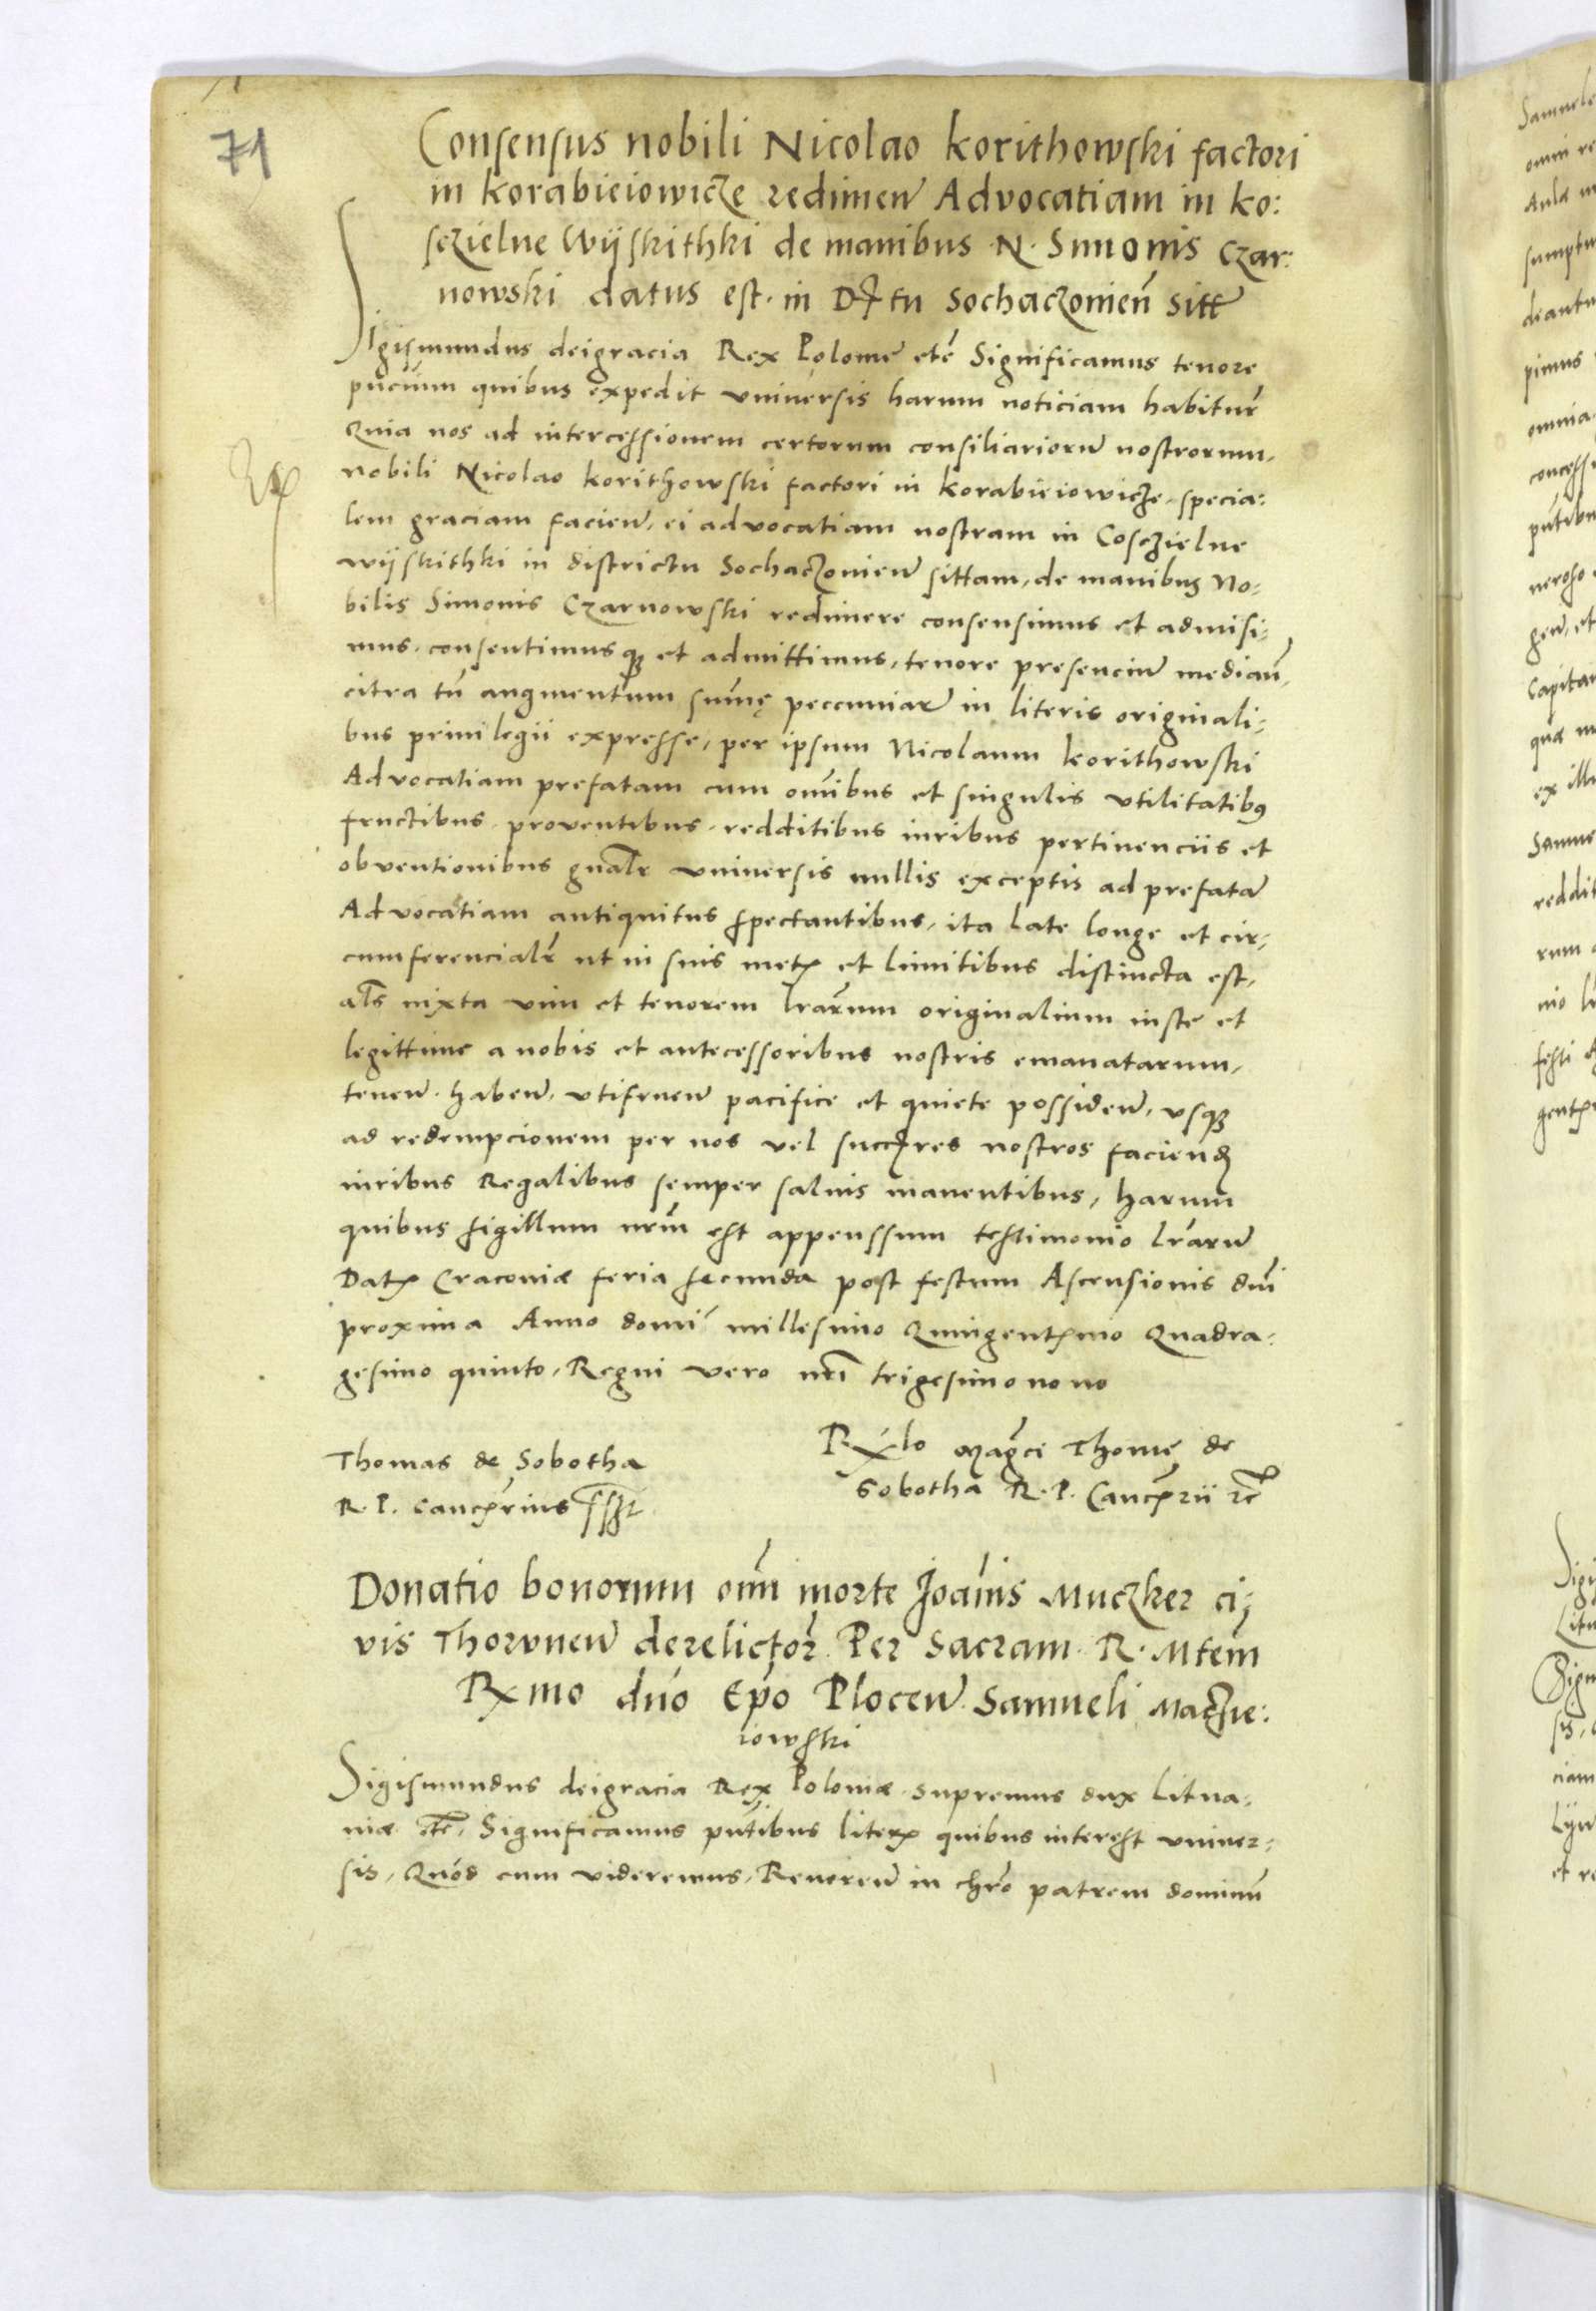 71
Consensus nobili Nicolao korithowski factori
in korabieiowicze redimen Advocatiam in ko:
sczielne Wÿskithki de manibus N. Simonis Czar:
nowski datus est. in Dtu Sochaczonien sitt
Sigismundus deigracia Rex Polonie etc Significamus tenore
pncium quibus expedit universis harum noticiam habitur
Quia nos ad intercessionem certorum consiliarioru nostrorum,
nobili Nicolao korithowski factori in korabieiowicze specia:
lem graciam facien, ei advocatiam nostram in Cosczielne
wÿskithki in districtu Sochaczonien sittam, de manibus No-
bilis Simonis Czarnowski redimere consensimus et admisi-
mus, consentimusque et admittimus, tenore presenciu median,
citra tn augmentum summę peccuniar in literis originali-
bus privilegii expresse, per ipsum Nicolaum korithowski
Advocatiam prefatam cum omibus et singulis utilitatibus
fructibus, proventibus, redditibus iuribus pertinenciis et
obventionibus gnalr universis nullis exceptis ad prefata
Advocatiam antiquitus spectantibus, ita late longe et cir-
cumferencialr ut in suis met et limitibus distincta est,
als iuxta vim et tenorem lrarum originalium iuste et
legittime a nobis et antecessoribus nostris emanatarum,
tenen. haben, utifruen pacifice et quiete possiden, usque
ad redempcionem per nos vel succres nostros faciend
iuribus Regalibus semper salvis manentibus, harum
quibus sigillum nrm est appenssum testimonio lraru
Dat Cracoviæ feria secunda post festum Ascensionis dni
proxima Anno domi millesimo Quingentmo Quadra-
gesimo quinto, Regni vero nri trigesimo nono
Thomas de Sobotha
R. P. cancrius sszt
Rlo Magci Thomę de
Sobotha R. P. Cancrii etc
Donatio bonorum oim morte Joannis Muczker ci-
vis Thorunen derelictor. Per Sacram R. Mtem
Rmo dno Epo Plocen Samueli Maczie:
iowski
Sigismundus deigracia Rex Poloniæ supremus dux Litua-
niæ etc, Significamus pntibus liter quibus interest univer-
sis, Quod cum videremus, Reveren in chro patrem dominu